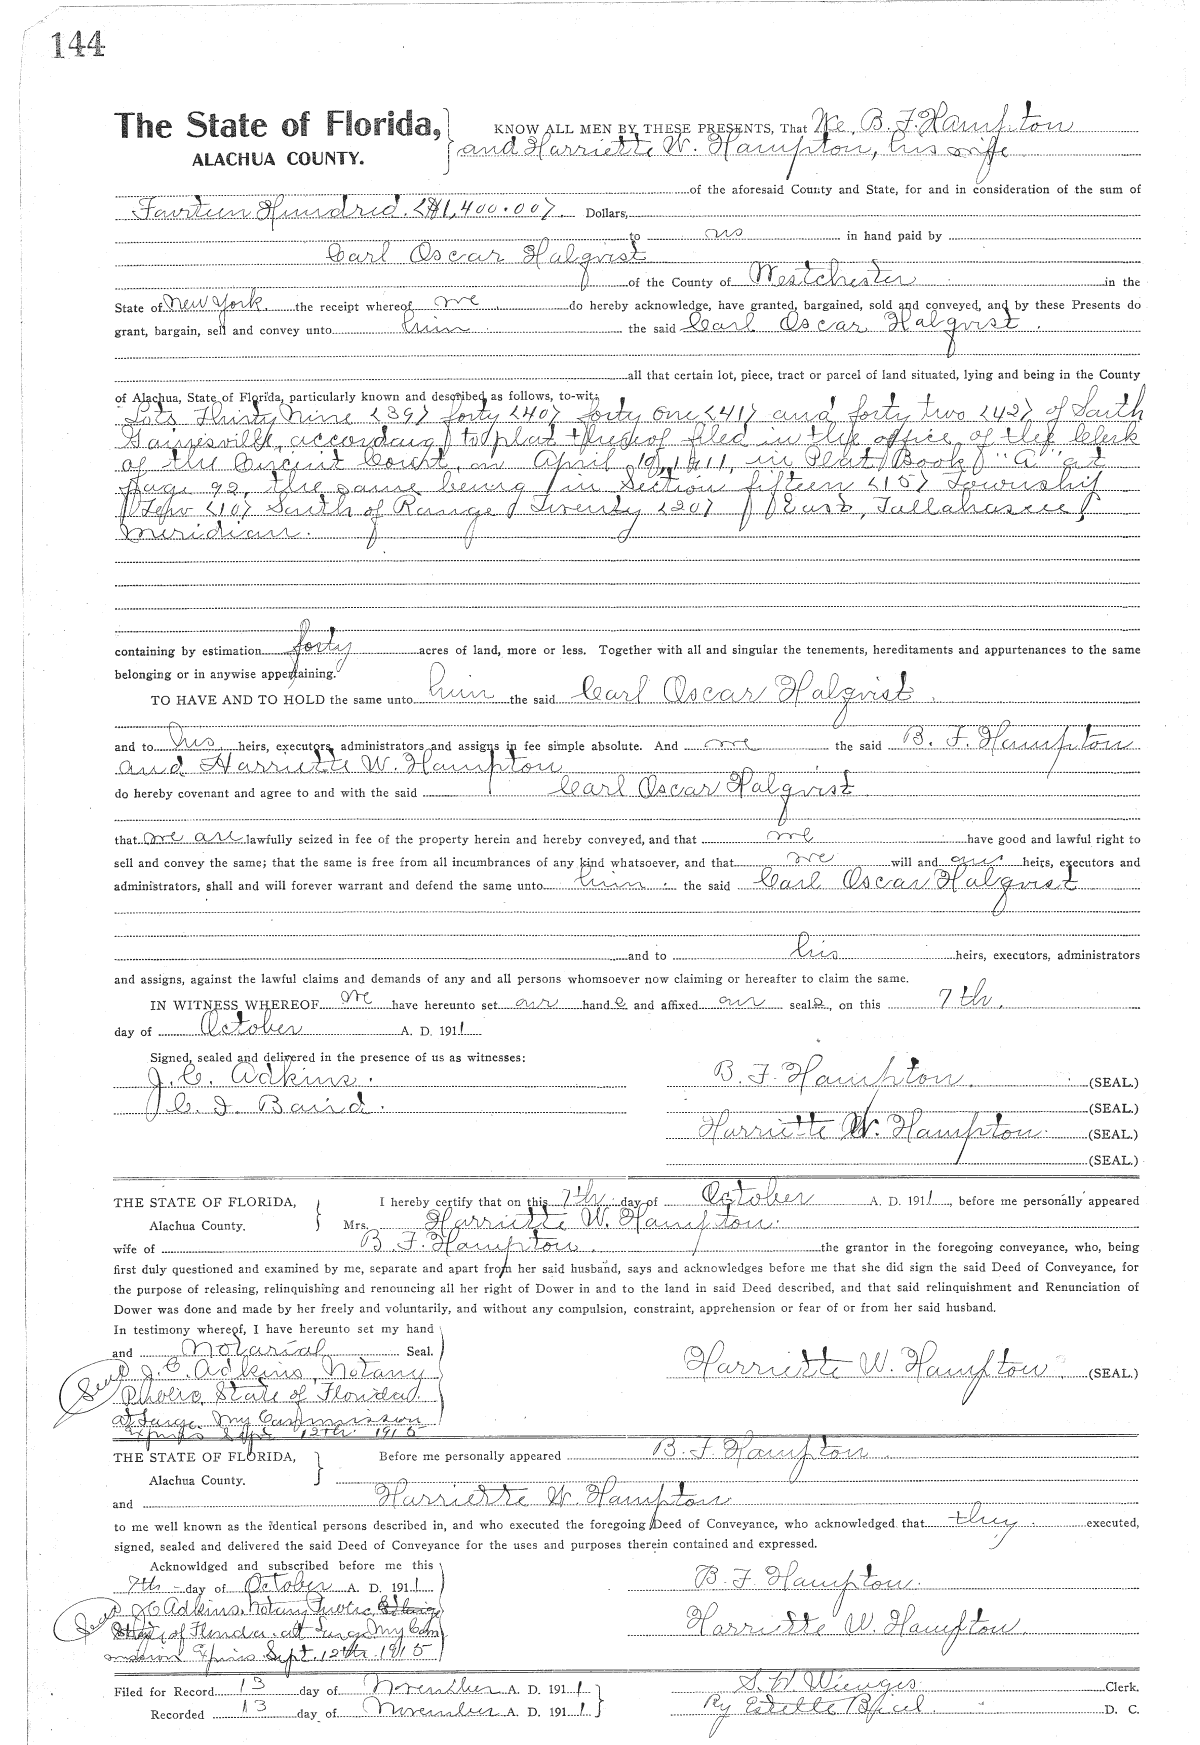 144
The State of Florida, KNOW ALL MEN BY THESE PRESENTS, That We, B. F. Hampton
ALACHUA COUNTY. and Harriette W. Hampton, his wife
of the aforesaid County and State, for and in consideration of the sum of
Fourteen Hundred <$1,400.00> Dollars,
to us in hand paid by
Carl Oscar Halqvist
of the County of Westchester in the
State of New York. the receipt whereof we do hereby acknowledge, have granted, bargained, sold and conveyed, and by these Presents do
grant, bargain, sell and convey unto him the said Carl Oscar Halqvist.
all that certain lot, piece, tract or parcel of land situated, lying and being in the County
of Alachua, State of Florida, particularly known and described as follows, to-wit:
Lots Thirty Nine <39> forty <40> forty one <41> and forty two <42> of South
Gainesville, according to plat thereof filed in the office of the Clerk
of the Circuit Court, on April 19, 1911, in Plat Book "A" at
page 92, the same being in Section fifteen <15> Township
Ten <10> South of Range Twenty <20> East, Tallahassee
Meridian.
containing by estimation forty acres of land, more or less. Together with all and singular the tenements, hereditaments and appurtenances to the same
belonging or in anywise appertaining.
TO HAVE AND TO HOLD the same unto him the said Carl Oscar Halqvist.
and to his heirs, executors, administrators and assigns in fee simple absolute. And we the said B. F. Hampton
and Harriette W. Hampton
do hereby covenant and agree to and with the said Carl Oscar Halqvist
that we are lawfully seized in fee of the property herein and hereby conveyed, and that we have good and lawful right to
sell and convey the same; that the same is free from all incumbrances of any kind whatsoever, and that we will and our heirs, executors and
administrators, shall and will forever warrant and defend the same unto him. the said Carl Oscar Halqvist
and to his heirs, executors, administrators
and assigns, against the lawful claims and demands of any and all persons whomsoever now claiming or hereafter to claim the same.
IN WITNESS WHEREOF we have hereunto set our hands and affixed our seals, on this 7th.
day of October A. D. 1911
Signed, sealed and delivered in the presence of us as witnesses:
J. C. Adkins. B. F. Hampton. (SEAL.)
C. I. Baird. (SEAL.)
Harriette W. Hampton. (SEAL.)
(SEAL.)
THE STATE OF FLORIDA, I hereby certify that on this 7th day of October A. D. 1911, before me personally appeared
Alachua County. Mrs. Harriette W. Hampton.
wife of B. F. Hampton. the grantor in the foregoing conveyance, who, being
first duly questioned and examined by me, separate and apart from her said husband, says and acknowledges before me that she did sign the said Deed of Conveyance, for
the purpose of releasing, relinquishing and renouncing all her right of Dower in and to the land in said Deed described, and that said relinquishment and Renunciation of
Dower was done and made by her freely and voluntarily, and without any compulsion, constraint, apprehension or fear of or from her said husband.
In testimony whereof, I have hereunto set my hand
and Notarial Seal.
Seal J. C. Adkins, Notary Harriette W. Hampton. (SEAL)
Public, State of Florida.
at Large. My Commission
Expires Sept 12th. 1915
THE STATE OF FLORIDA, Before me personally appeared B. F. Hampton
Alachua County.
and Harriette W. Hampton
to me well known as the identical persons described in, and who executed the foregoing Deed of Conveyance, who acknowledged that they executed,
signed, sealed and delivered the said Deed of Conveyance for the uses and purposes therein contained and expressed.
Acknowldged and subscribed before me this
7th day of October A. D. 1911 B. F. Hampton.
Seal J C Adkins, Notary Public,
State of Florida. at Large My Com Harriette W. Hampton.
mission Expires Sept. 12th. 1915
Filed for Record 13 day of November A. D. 1911 S. H. Wienges. Clerk.
Recorded 13 day of November A. D. 1911 By Estelle D. C.